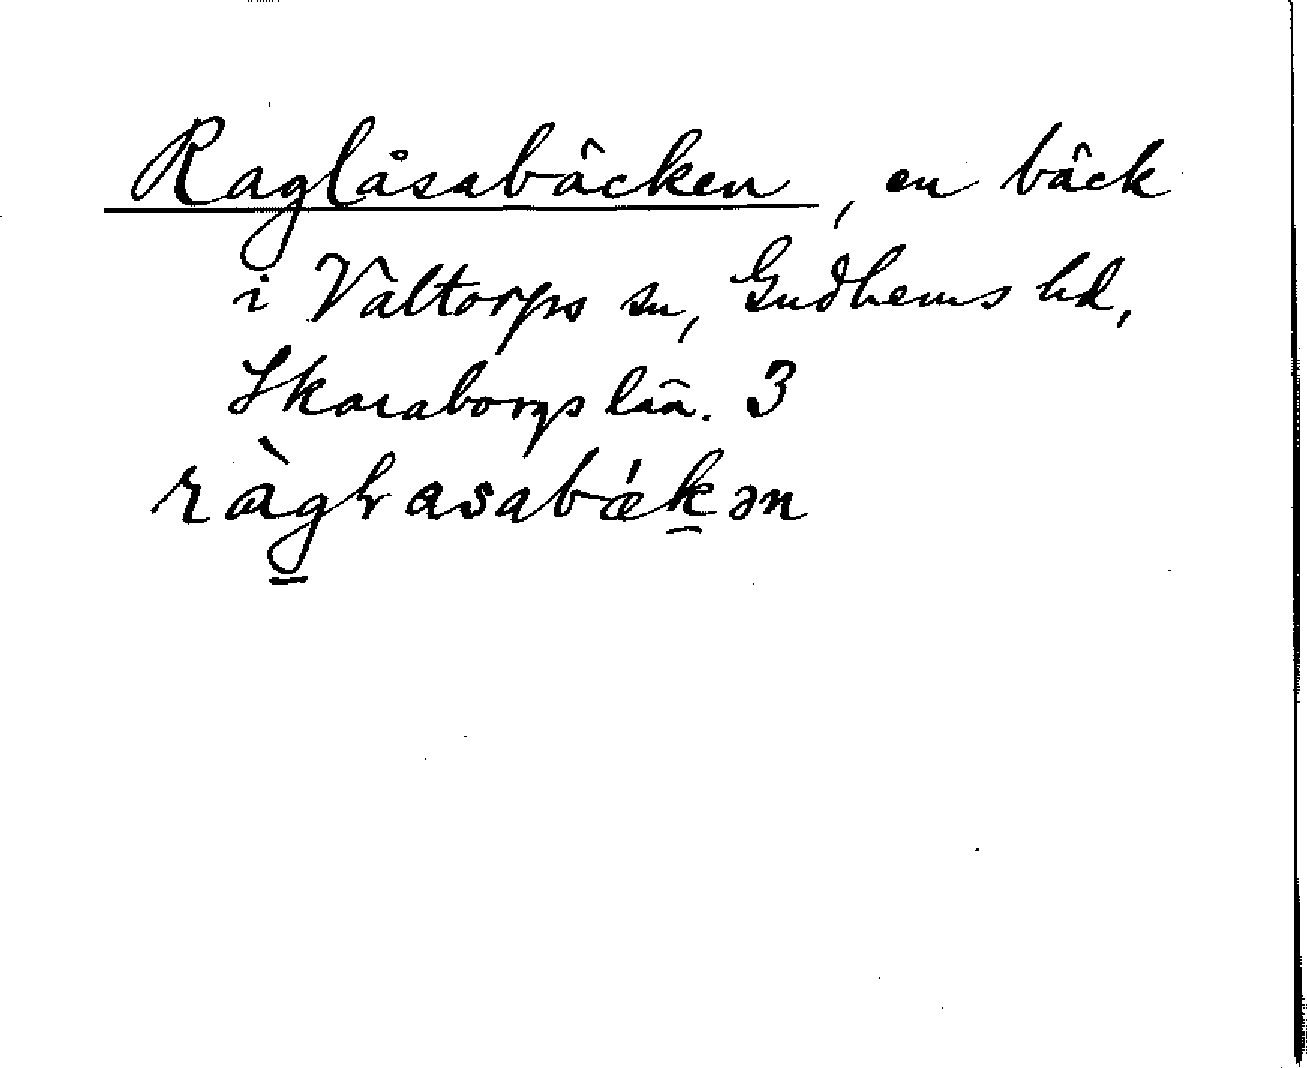 Raglåsabäcken, en bäck
i Valtorps sn, Gudhems hd,
Skaraborgs län. 3
ràgɽasabǽkən